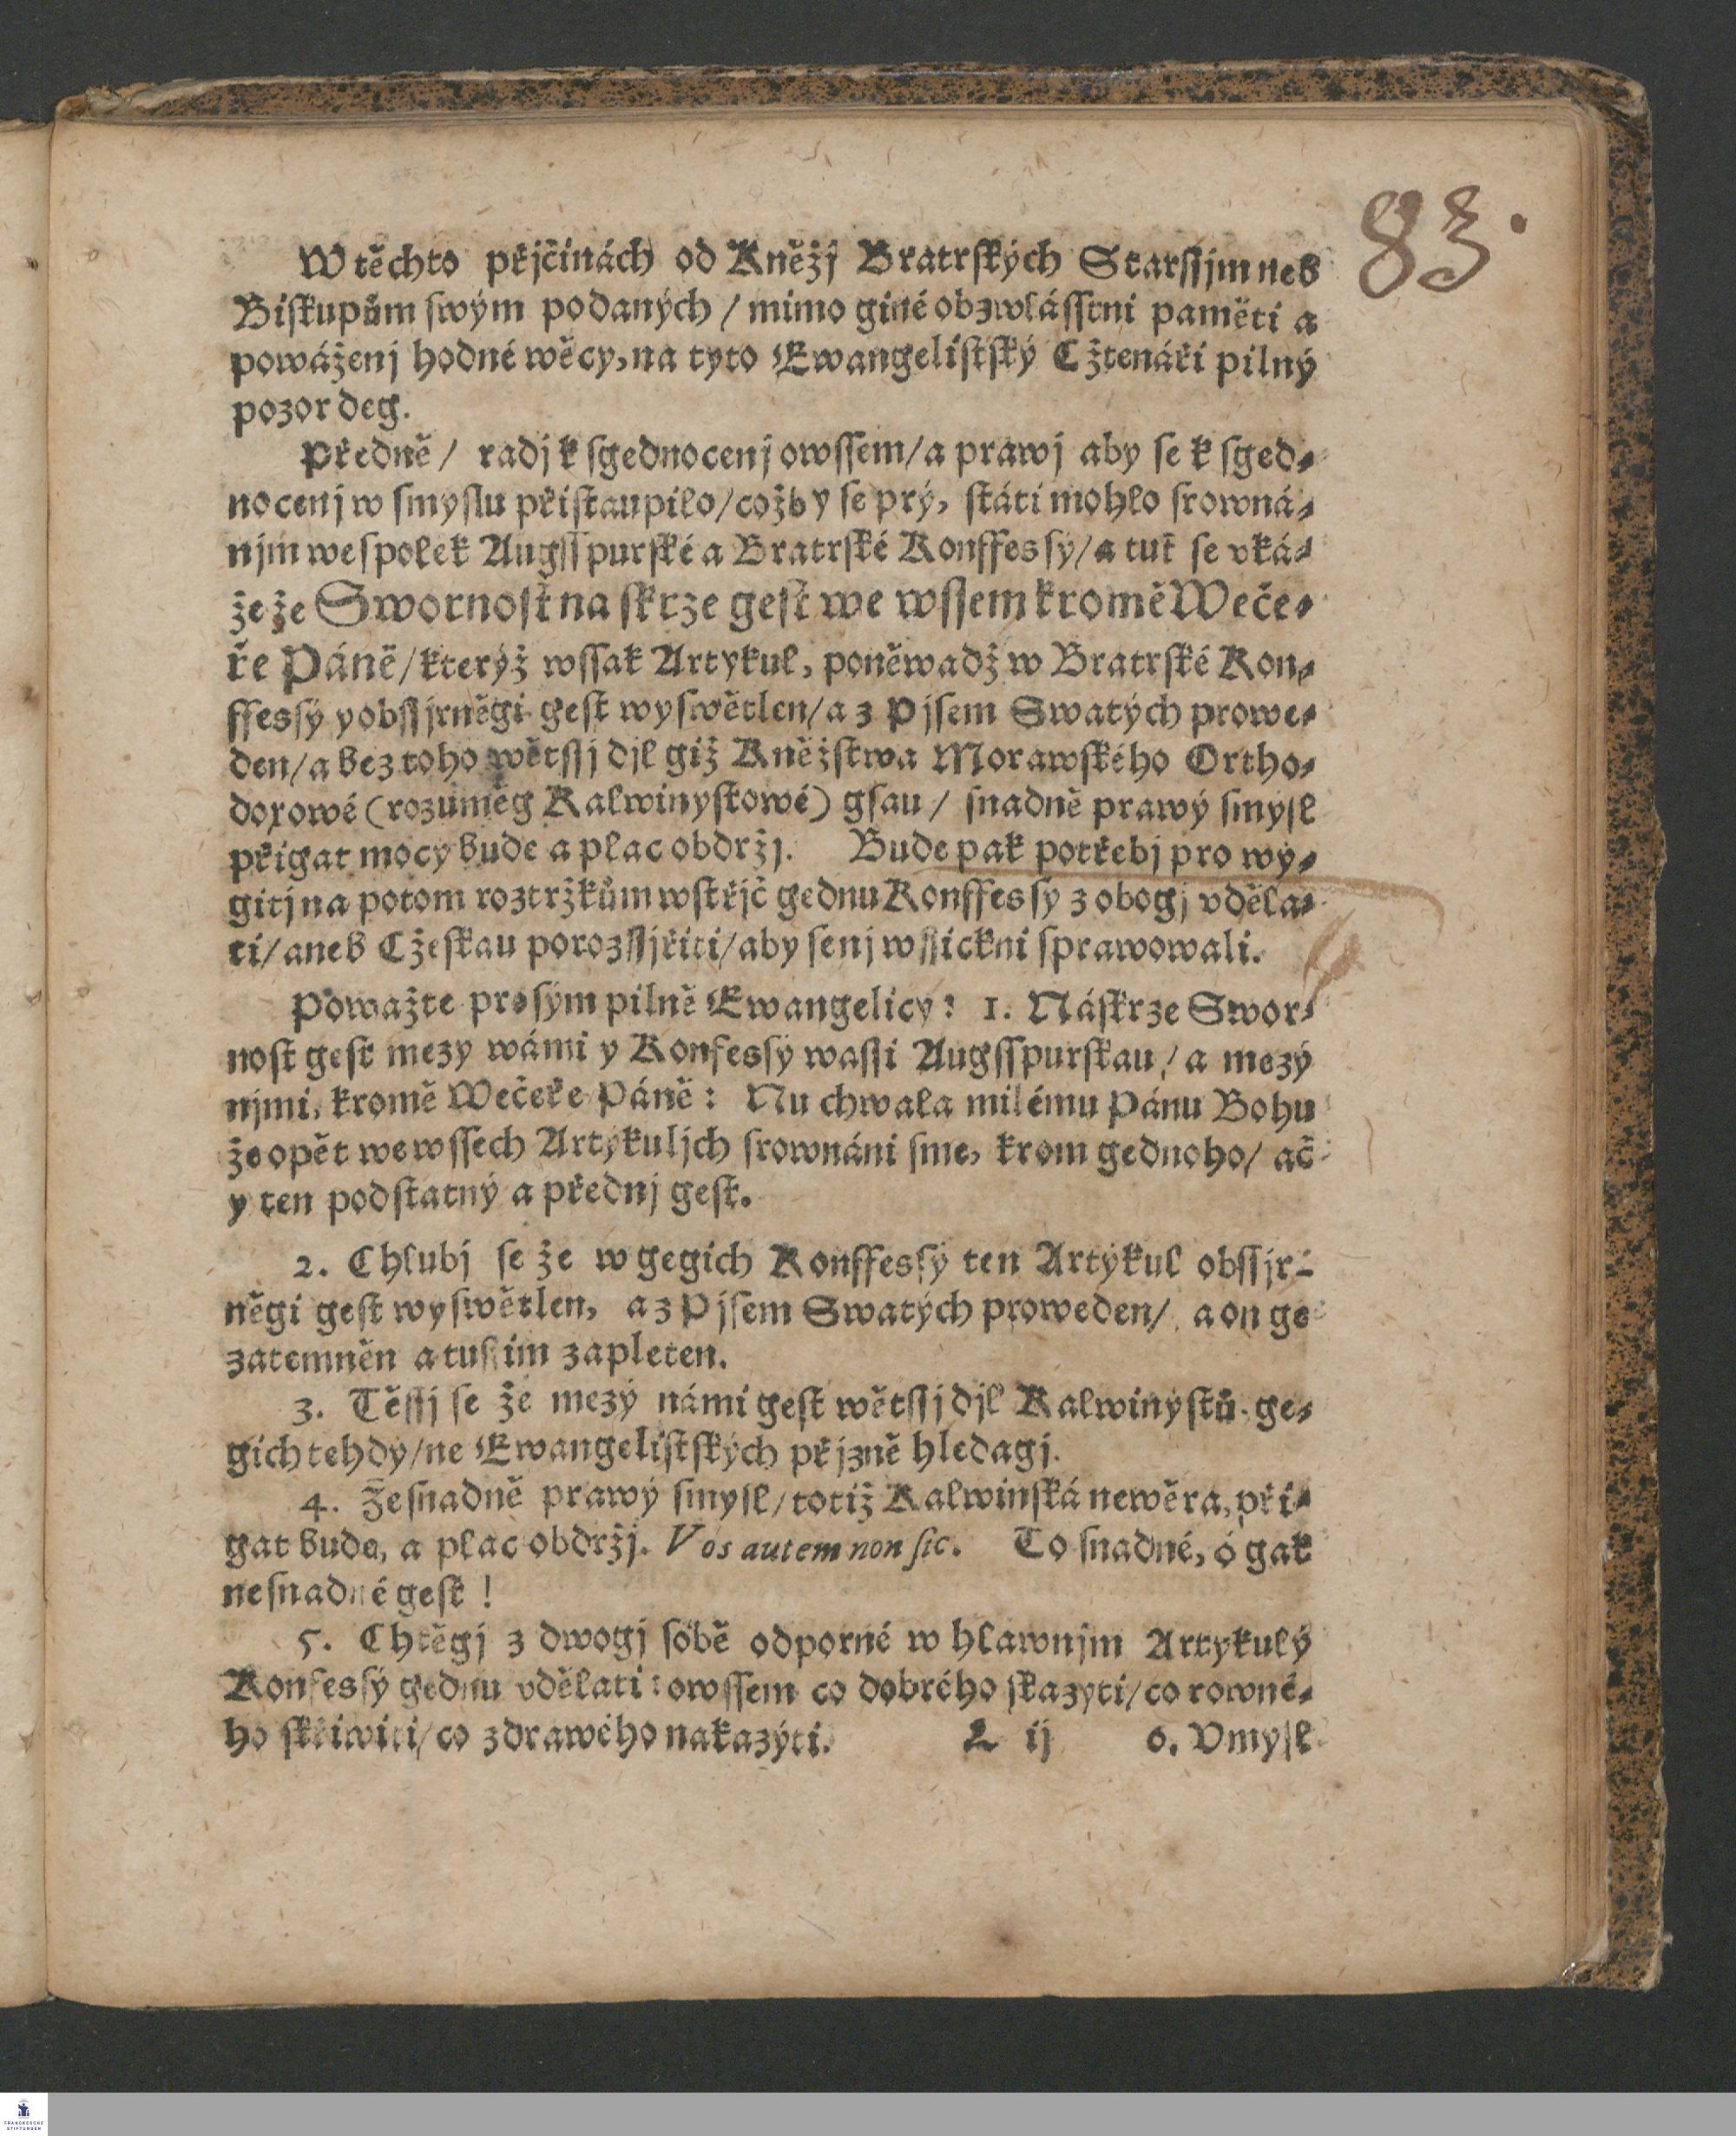 83.
W těchto přjčinách od Kněžj Bratrſkých Starſſjm neb
Biſkupům ſwým podaných / mimo giné obzwláſſtni paměti a
powáženj hodné wěcy, na tyto Ewangeliſtſký Cžtenáři pilný
pozor deg.
Předně / radj k ſgednocenj owſſem / a prawj aby ſe k ſged⸗
nocenj w ſmyſlu přiſtaupilo / cožby ſe prý, ſtáti mohlo ſrowná⸗
njm weſpolek Augſſpurſké a Bratrſké Konffesſý / a tuť ſe vká⸗
že že Swornoſt na ſkrze geſt we wſſem kromě Weče⸗
ře Páně / kterýž wſſak Artykul, poněwadž w Bratrſké Kon⸗
ffesſý y obſſjrněgi geſt wyſwětlen / a z Pjſem Swatých prowe⸗
den / a bez toho wětſſj djl giž Kněžſtwa Morawſkého Ortho⸗
doxowé (rozuměg Kalwinyſtowé) gſau / ſnadně prawý ſmyſl
přigat mocy bude a plac obdržj. Bude pak potřebj pro wy⸗
gitj na potom roztržkům wſtřjč gednu Konffesſý z obogj vděla⸗
ti / aneb Cžeſkau porozſſjřiti / aby ſe nj wſſickni ſprawowali.
Powažte proſým pilně Ewangelicy: 1. Náſkrze Swor⸗
noſt geſt mezy wámi y Konfesſý waſſi Augſſpurſkau / a mezý
njmi, kromě Wečeře Páně: Nu chwala milému Pánu Bohu
že opět we wſſech Artykuljch ſrownáni ſme, krom gednoho / ač
y ten podſtatný a přednj geſt.
2. Chlubj ſe že w gegich Konffesſý ten Artykul obſſjr⸗
něgi geſt wyſwětlen, a z Pjſem Swatých proweden / a on ge
zatemněn a tuſſim zapleten.
3. Těſſj ſe že mezý námi geſt wětſſj djl Kalwinyſtů, ge⸗
gich tehdy / ne Ewangeliſtſkých přjzně hledagj.
4. Že ſnadně prawý ſmyſl / totiž Kalwinſká newěra, při⸗
gat bude, a plac obdržj. Vos autem non ſic. To ſnadné, ó gak
neſnadné geſt !
5. Chtěgj z dwogj ſobě odporné w hlawnjm Artykulý
Konfesſý gednu vdělati : owſſem co dobrého ſkazyti / co rowné⸗
ho ſkřiwiti / co zdrawého nakazýti. L ij 6. Vmyſl
FRANCKESCHE
STIFTUNGEN